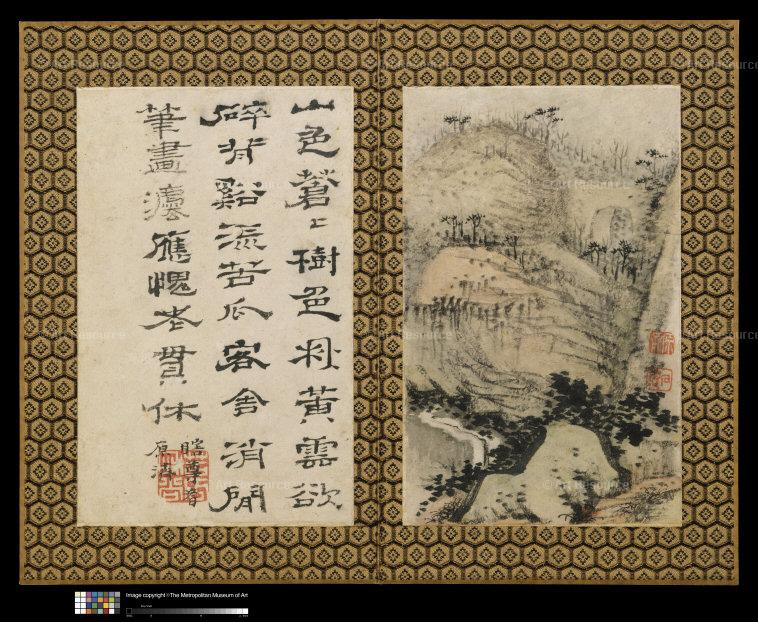 山色蒼〻樹色秋黃雲欲
碎背谿流苦瓜客舍消閒
筆畫灋應愧老貫休
瞎尊者
原濟
Image copyright © The Metropolitan Museum of Art
Art Resource